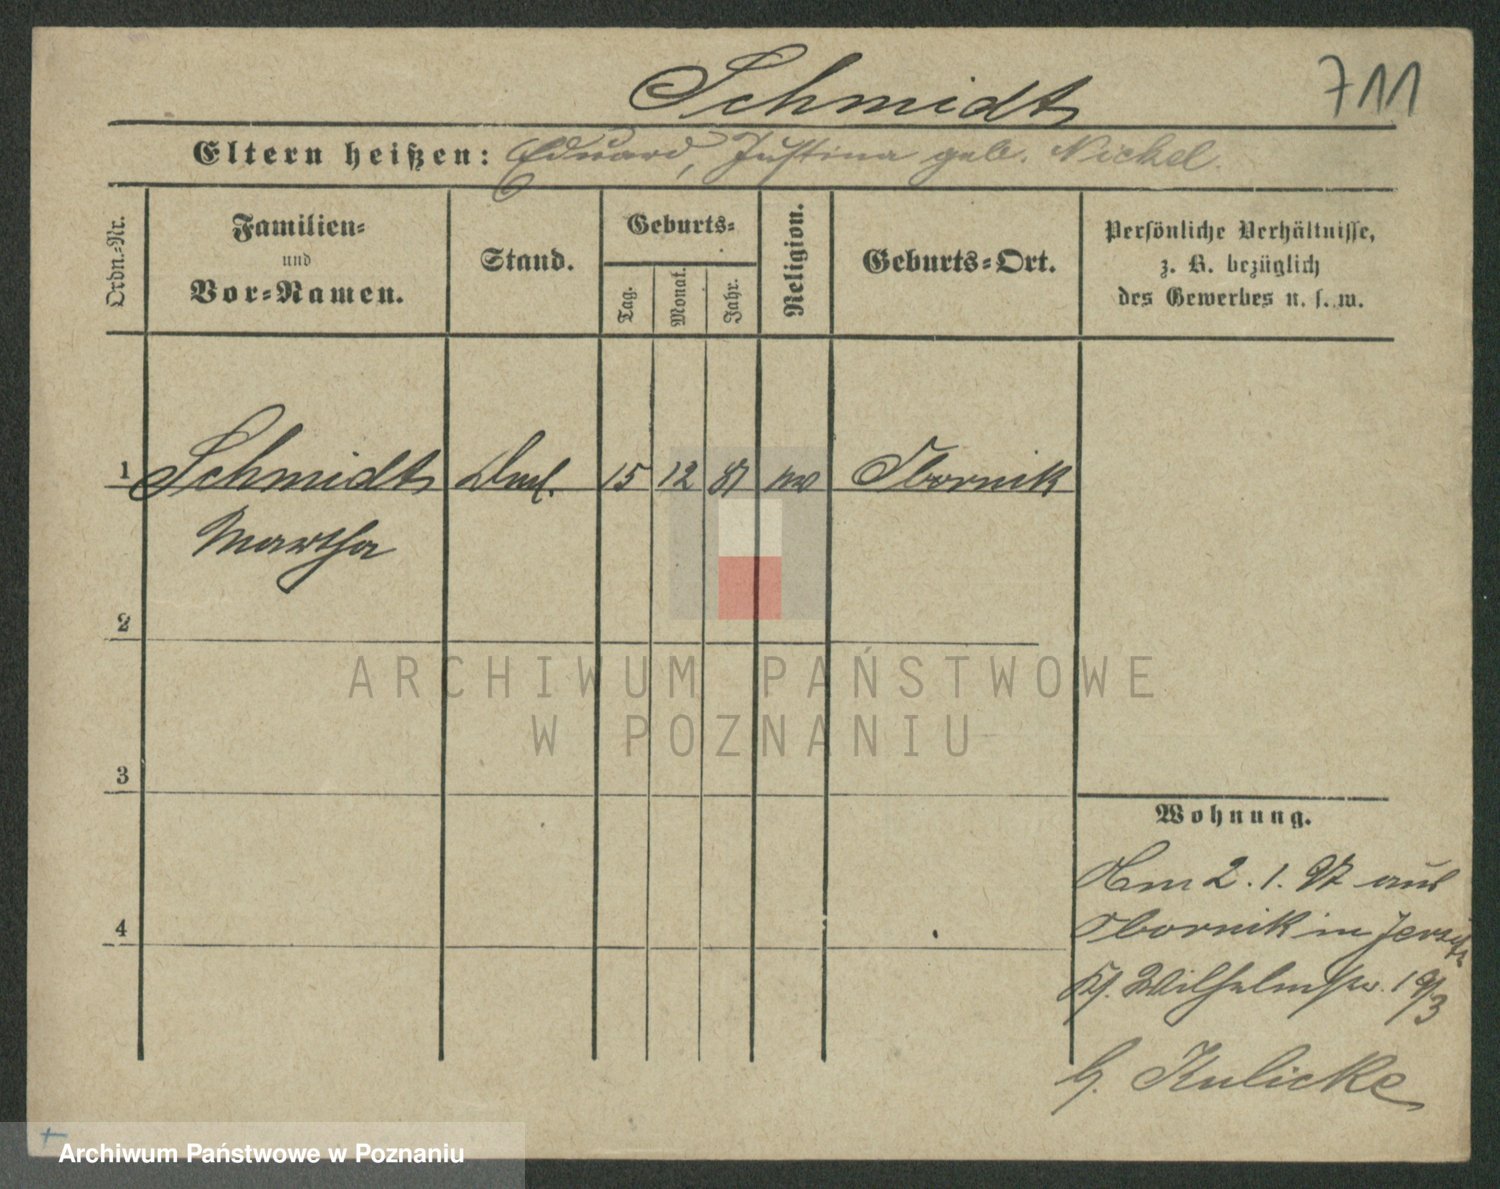 Schmidt
711
Eltern heißen: Eduard, Justina geb. Nickel.
Ordn.-Nr.
Familien-
und
Vor-Namen.
Stand.
Geburts-
Tag.
Monat.
Jahr.
Religion.
Geburts-Ort.
Persönliche Verhältnisse,
z. B. bezüglich
des Gewerbes u. s. w.
1 Schmidt 15 12 Obornik
Martha
2
ARCHIWUM PAŃSTWOWE
W POZNANIU
3
Wohnung.
Am 2. 1. 97 aus
4
Obornik in Jersitz
Wilhelmstr. 19/3
b. Kulicke
Archiwum Państwowe w Poznaniu